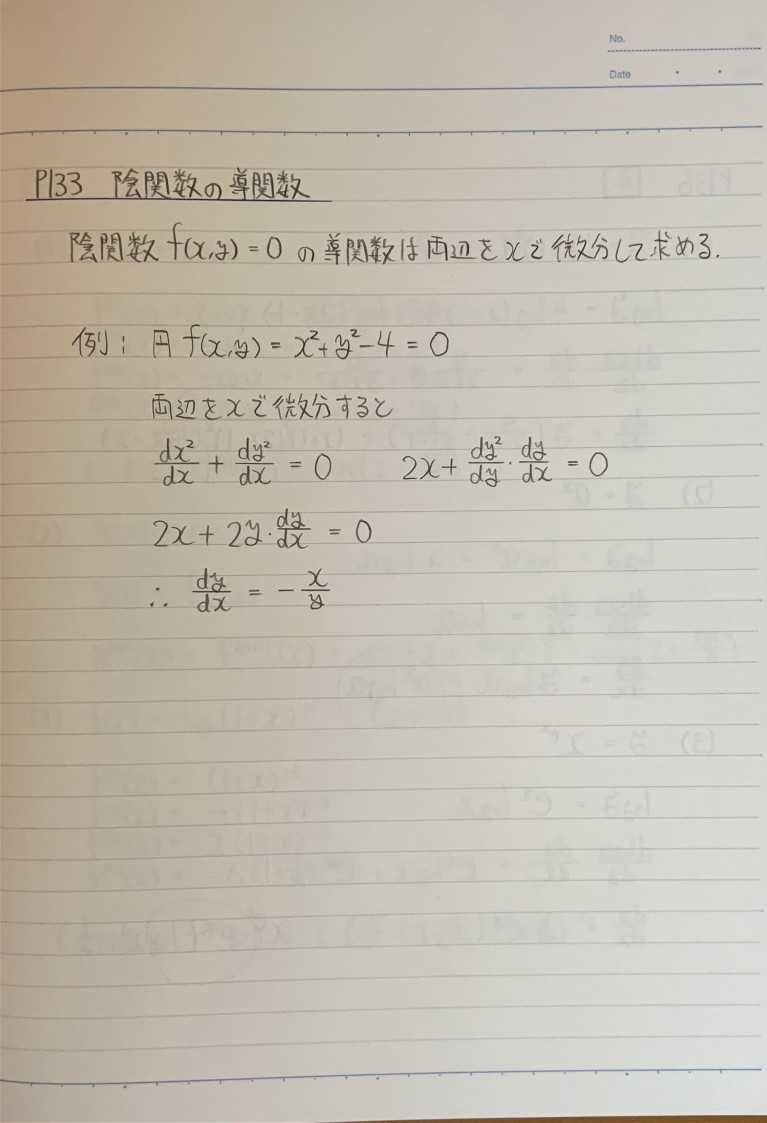 No.
Date
P133 陰関数の導関数
陰関数 f(x,y) = 0 の導関数は両辺をxで微分して求める.
例: 円 f(x,y) = x²+y²-4 = 0
両辺をxで微分すると
dx²/dx + dy²/dx = 0 2x + dy²/dy · dy/dx = 0
2x + 2y · dy/dx = 0
∴ dy/dx = - x/y